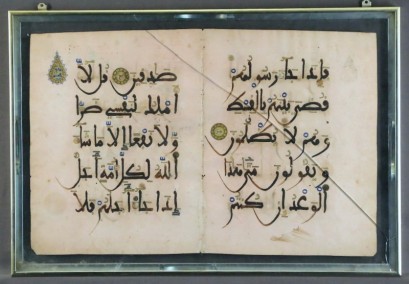 فاذا جا رسولهم
قضى بينهم بالقسط
وهم لا يظلمون
ويقولون متى هذا
الوعد ان كنتم
صدقين قل لا
املك لنفسى ضرا
ولا نفعا الا ما شا
الله لكل امة اجل
اذا جا اجلهم فلا